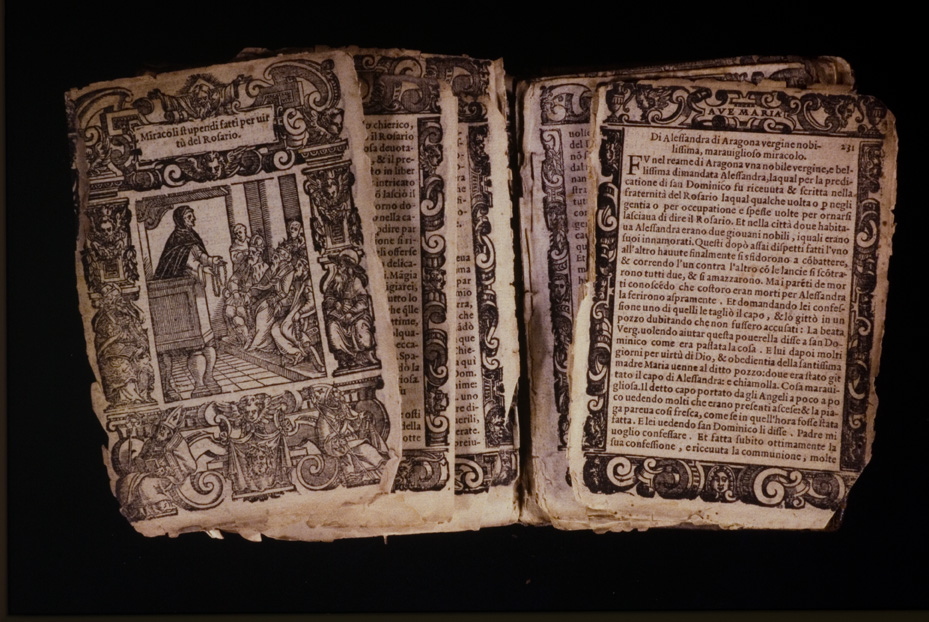 Miracoli stupendi fatti per uir
tù del Rosario.
chierico,
il Rosario
sa deuota-
& il pre-
to in liber
intricato
lasciò il
orno do-
nella ca-
odire par
si ri-
offerse
delica-
Màgia
igiarei,
utto lo
q̃lle
time,
olqua-
cca-
Spa-
diosa
rosti
della
otte
AVE MARIA
231
Di Alessandra di Aragona vergine nobi-
lissima, marauiglioso miracolo.
FV nel reame di Aragona vna nobile vergine, e bel-
lissima dimandata Alessandra, laqual per la predi-
catione di san Dominico fu riceuuta & scritta nella
fraternità del Rosario laqual qualche uolta o ꝑ negli
gentia o per occupatione e spesse uolte per ornarsi
lasciaua di dire il Rosario. Et nella città doue habita-
ua Alessandra erano due giouani nobili, iquali erano
suoi innamorati. Questi dopò assai dispetti fatti l'vno
all'altro hauute finalmente si sfidorono a cõbattere,
& correndo l'un contra l'altro cõ le lancie si scõtra-
rono tutti due, & si amazzarono. Ma i parẽti de mor
ti conoscẽdo che costoro eran morti per Alessandra
la ferirono aspramente. Et domandando lei confes-
sione uno di quelli le tagliò il capo, & lo gittò in un
pozzo dubitando che non fussero accusati: La beata
Verg. uolendo aiutar questa pouerella disse a san Do-
minico come era passata la cosa. E lui dapoi molti
giorni per uirtù di Dio, & obedientia della santissima
madre Maria uenne al ditto pozzo: doue era stato git
tato il capo di Alessandra: e chiamolla. Cosa maraui-
gliosa. Il detto capo portato da gli Angeli a poco a po
co uedendo molti che erano presenti ascese: & la pia-
ga pareua così fresca, come se in quell'hora fosse stata
fatta. E lei uedendo san Dominico li disse. Padre mi
uoglio confessare. Et fatta subito ottimamente la
sua confessione, e riceuuta la communione, molte